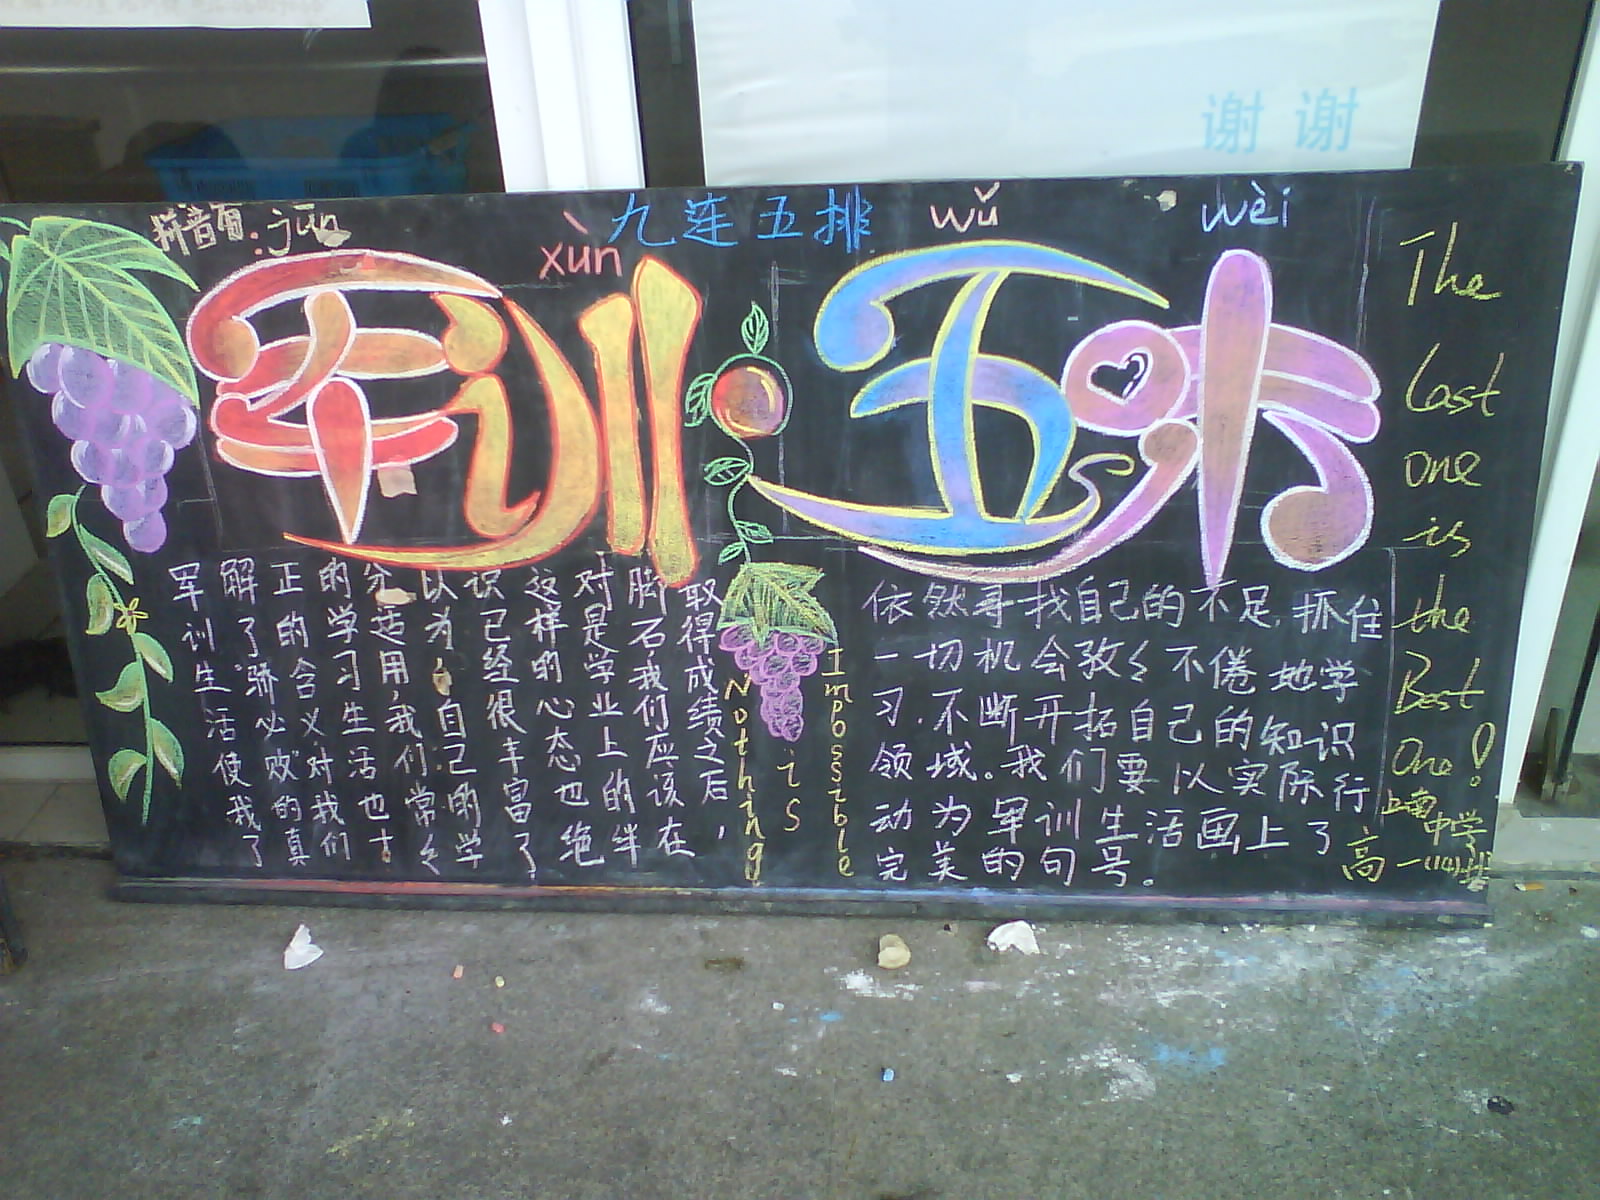 谢谢
拼音葡:jūn
xùn
九连五排
wǔ
wèi
军训五味
军训生活使我了
解了"骄必败"的真
正的含义,对我们
的学习生活也十
分适用,我们常々
以为,自己的学
识已经很丰富了
这样的心态也绝
对是学业上的绊
脚石我们应该在
取得成绩之后,
Nothing
is
Impossible
依然寻找自己的不足,抓住
一切机会孜々不倦地学
习,不断开拓自己的知识
领域。我们要以实际行
动为军训生活画上了
完美的句号。
The
Last
one
is
the
Best
One!
中学
高一(14)班